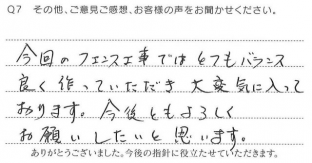 Q7 その他、ご意見ご感想、お客様の声をお聞かせください。
今回のフェンス工事ではとてもバランス
良く作っていただき大変気に入って
おります。今後ともよろしく
お願いしたいと思います。
ありがとうございました。今後の指針に役立たせていただきます。